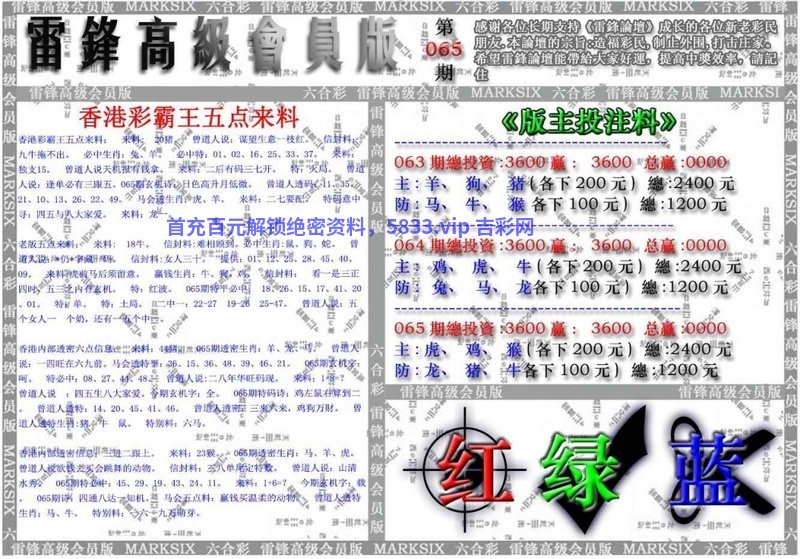 雷鋒高級會員版
第
065
期
感谢各位长期支持《雷鋒論壇》成长的各位新老彩民
朋友.本論壇的宗旨:造福彩民,制止外围,打击庄家.
希望雷鋒論壇能帶給大家好運，提高中奬效率，請記
住
雷锋高级会员版 MARKSIX 六合彩
香港彩霸王五点来料
香港彩霸王五点来料： 来料： 20猪， 曾道人说：谋望生意一枝红。 信封料：
九牛拖不出。 必中生肖：兔、羊。 必中特：01、02、16、25、33、37。 来料：
独支15。 曾道人说天机报有钱拿。 来料：二后有码三七开。 特：火局。 曾道
人说：逢单必有三跟五。065期玄机诗：日色高升月低微。 曾道人透码：11、35、
21、10、13、26、22、49。 马会透生肖：虎、羊。 来料：二七要配。 特码意中
寻：四五与八大家爱。 来料：龙
首充百元解锁绝密资料，5833.vip 吉彩网
老版五点来料： 来料： 18牛。 信封料：难相顾到。必中生肖：鼠、狗、蛇。 曾
信封料：女人三十。 提供：01、12、25、28、45、40、
09。 来料：虎前马后须留意。 赢钱生肖：牛、狗、鸡。 信封料： 看一是三正
四时，五三之内有玄机。 特：红波。 065期特平必中：18、26、15、17、41、20
、01。 特：单。 特：土局。 二中一：22-27 19-26 25-47。 曾道人说：五
个女人一个奶，还有一五个中一。
香港内部透密六点信息： 来料：44猪。 065期透密生肖：羊、龙、马。 曾道人
说：一四旺在六九前。马会透特重：36、15、36、48、39、46、21。 065期玄机字：
呵。 特必中：08、27、44、48。 曾道人说：二八年华旺码现。 来料：1-8=？
曾道人说 ：四五生八大家爱。今期玄机字：全。 065期特码诗：鸡左鼠右得到二
。 曾道人透特：14、20、45、41、46。 曾道人透密：三来六来，鸡狗万财。 曾
道人透特生肖：猪、牛、鼠。 特别料：六马。
香港内部透密信息：二进二跟上。 来料：23猴。 065期透密生肖：马、羊、虎。
曾道人说欲钱去买会跳舞的动物。 信封料：三八单尾记特数。 曾道人说：山清
水秀。 065期特必中：45、29、19、43、24、11。 来料：1+6=？ 今期玄机字：载
。 065期诗：四通八达一知机。 马会五点料：赢钱买温柔的动物。 曾道人透特
生肖：马、牛。 特别料：六七九万萌芽。
《版主投注料》
063期總投資:3600 赢： 3600 总赢:0000
主:羊、狗、猪(各下200元) 總:2400元
防:马、牛、猴 各下100元) 總:1200元
064期總投資:3600 赢： 3600 总赢:0000
主:鸡、虎、牛(各下200元) 總:2400元
防:兔、马、龙(各下100元) 總:1200元
065期總投資:3600 赢： 3600 总赢:0000
主:虎、鸡、猴(各下200元) 總:2400元
防:龙、猪、牛各下100元) 總:1200元
雷锋高级会员版
红 绿 蓝
雷锋高级会员版 MARKSIX 六合彩 雷锋高级会员版 MARKSIX 六合彩 雷锋高级会员版